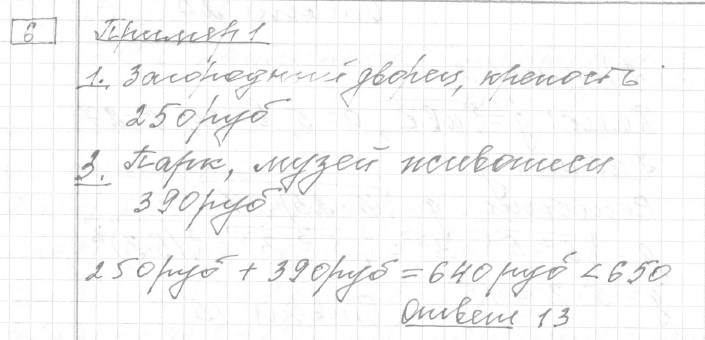 6 Пример 1
1. Загородный дворец, крепость
250 руб
3. Парк, музей живописи
390 руб
250 руб + 390 руб = 640 руб < 650
Ответ 13